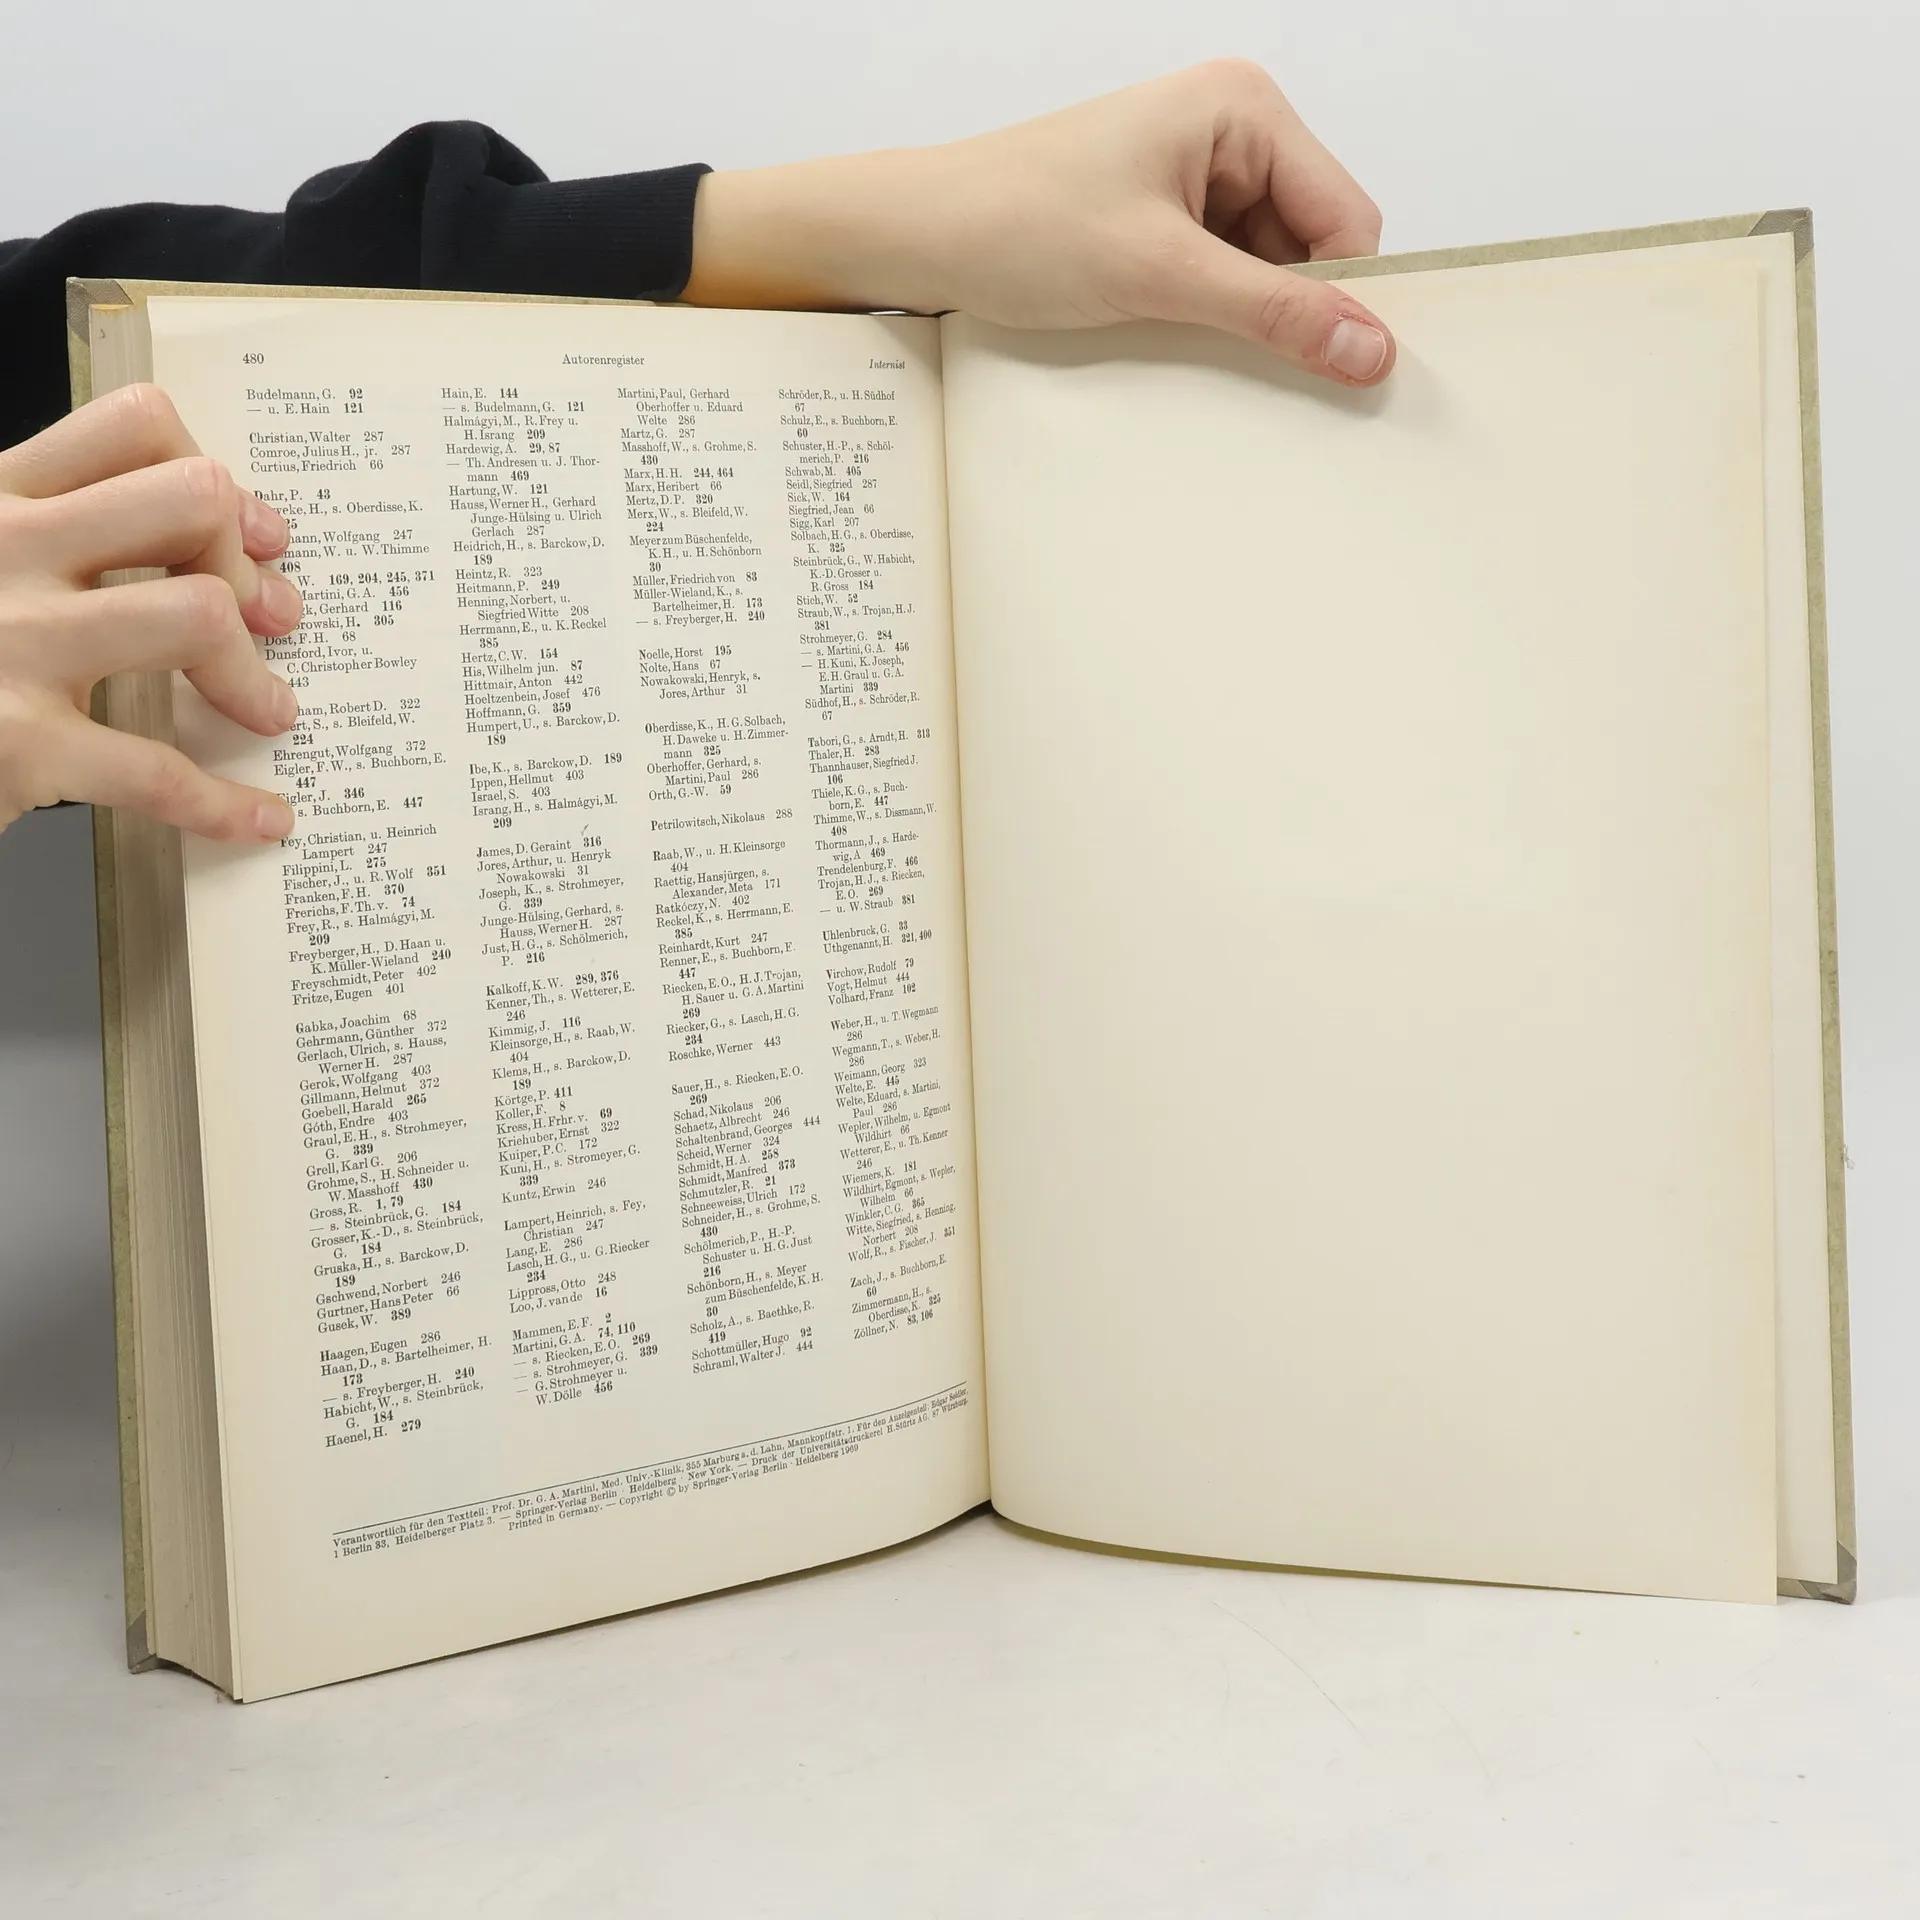 480
Autorenregister
Internist
Budelmann, G. 92
— u. E. Hain 121
Christian, Walter 287
Comroe, Julius H., jr. 287
Curtius, Friedrich 66
Dahr, P. 43
H., s. Oberdisse, K.
Wolfgang 247
W. u. W. Thimme
408
W. 169, 204, 245, 371
Martini, G. A. 456
Gerhard 116
H. 305
Dost, F. H. 68
Dunsford, Ivor, u.
C. Christopher Bowley
443
Robert D. 322
S., s. Bleifeld, W.
224
Ehrengut, Wolfgang 372
Eigler, F. W., s. Buchborn, E.
447
Eigler, J. 346
s. Buchborn, E. 447
Fey, Christian, u. Heinrich
Lampert 247
Filippini, L. 275
Fischer, J., u. R. Wolf 351
Franken, F. H. 370
Frerichs, F. Th. v. 74
Frey, R., s. Halmágyi, M.
209
Freyberger, H., D. Haan u.
K. Müller-Wieland 240
Freyschmidt, Peter 402
Fritze, Eugen 401
Gabka, Joachim 68
Gehrmann, Günther 372
Gerlach, Ulrich, s. Hauss,
Werner H. 287
Gerok, Wolfgang 403
Gillmann, Helmut 372
Goebell, Harald 265
Góth, Endre 403
Graul, E. H., s. Strohmeyer,
G. 339
Grell, Karl G. 206
Grohme, S., H. Schneider u.
W. Masshoff 430
Gross, R. 1, 79
— s. Steinbrück, G. 184
Grosser, K.-D., s. Steinbrück,
G. 184
Gruska, H., s. Barckow, D.
189
Gschwend, Norbert 246
Gurtner, Hans Peter 66
Gusek, W. 389
Haagen, Eugen 286
Haan, D., s. Bartelheimer, H.
173
— s. Freyberger, H. 240
Habicht, W., s. Steinbrück,
G. 184
Haenel, H. 279
Hain, E. 144
— s. Budelmann, G. 121
Halmágyi, M., R. Frey u.
H. Israng 209
Hardewig, A. 29, 87
— Th. Andresen u. J. Thor-
mann 469
Hartung, W. 121
Hauss, Werner H., Gerhard
Junge-Hülsing u. Ulrich
Gerlach 287
Heidrich, H., s. Barckow, D.
189
Heintz, R. 323
Heitmann, P. 249
Henning, Norbert, u.
Siegfried Witte 208
Herrmann, E., u. K. Reckel
385
Hertz, C. W. 154
His, Wilhelm jun. 87
Hittmair, Anton 442
Hoeltzenbein, Josef 476
Hoffmann, G. 359
Humpert, U., s. Barckow, D.
189
Ibe, K., s. Barckow, D. 189
Ippen, Hellmut 403
Israel, S. 403
Israng, H., s. Halmágyi, M.
209
James, D. Geraint 316
Jores, Arthur, u. Henryk
Nowakowski 31
Joseph, K., s. Strohmeyer,
G. 339
Junge-Hülsing, Gerhard, s.
Hauss, Werner H. 287
Just, H. G., s. Schölmerich,
P. 216
Kalkoff, K. W. 289, 376
Kenner, Th., s. Wetterer, E.
246
Kimmig, J. 116
Kleinsorge, H., s. Raab, W.
404
Klems, H., s. Barckow, D.
189
Körtge, P. 411
Koller, F. 8
Kress, H. Frhr. v. 69
Kriehuber, Ernst 322
Kuiper, P. C. 172
Kuni, H., s. Stromeyer, G.
339
Kuntz, Erwin 246
Lampert, Heinrich, s. Fey,
Christian 247
Lang, E. 286
Lasch, H. G., u. G. Riecker
234
Lippross, Otto 248
Loo, J. van de 16
Mammen, E. F. 2
Martini, G. A. 74, 110
— s. Riecken, E. O. 269
— s. Strohmeyer, G. 339
— G. Strohmeyer u.
W. Dölle 456
Martini, Paul, Gerhard
Oberhoffer u. Eduard
Welte 286
Martz, G. 287
Masshoff, W., s. Grohme, S.
430
Marx, H. H. 244, 464
Marx, Heribert 66
Mertz, D. P. 320
Merx, W., s. Bleifeld, W.
224
Meyer zum Büschenfelde,
K. H., u. H. Schönborn
30
Müller, Friedrich von 83
Müller-Wieland, K., s.
Bartelheimer, H. 173
— s. Freyberger, H. 240
Noelle, Horst 195
Nolte, Hans 67
Nowakowski, Henryk, s.
Jores, Arthur 31
Oberdisse, K., H. G. Solbach,
H. Daweke u. H. Zimmer-
mann 325
Oberhoffer, Gerhard, s.
Martini, Paul 286
Orth, G.-W. 59
Petrilowitsch, Nikolaus 288
Raab, W., u. H. Kleinsorge
404
Raettig, Hansjürgen, s.
Alexander, Meta 171
Ratkóczy, N. 402
Reckel, K., s. Herrmann, E.
385
Reinhardt, Kurt 247
Renner, E., s. Buchborn, E.
447
Riecken, E. O., H. J. Trojan,
H. Sauer u. G. A. Martini
269
Riecker, G., s. Lasch, H. G.
234
Roschke, Werner 443
Sauer, H., s. Riecken, E. O.
269
Schad, Nikolaus 206
Schaetz, Albrecht 246
Schaltenbrand, Georges 444
Scheid, Werner 324
Schmidt, H. A. 258
Schmidt, Manfred 373
Schmutzler, R. 21
Schneeweiss, Ulrich 172
Schneider, H., s. Grohme, S.
430
Schölmerich, P., H.-P.
Schuster u. H. G. Just
216
Schönborn, H., s. Meyer
zum Büschenfelde, K. H.
30
Scholz, A., s. Baethke, R.
419
Schottmüller, Hugo 92
Schraml, Walter J. 444
Schröder, R., u. H. Südhof
67
Schulz, E., s. Buchborn, E.
60
Schuster, H.-P., s. Schöl-
merich, P. 216
Schwab, M. 405
Seidl, Siegfried 287
Sick, W. 164
Siegfried, Jean 66
Sigg, Karl 207
Solbach, H. G., s. Oberdisse,
K. 325
Steinbrück, G., W. Habicht,
K.-D. Grosser u.
R. Gross 184
Stich, W. 52
Straub, W., s. Trojan, H. J.
381
Strohmeyer, G. 284
— s. Martini, G. A. 456
— H. Kuni, K. Joseph,
E. H. Graul u. G. A.
Martini 339
Südhof, H., s. Schröder, R.
67
Tabori, G., s. Arndt, H. 313
Thaler, H. 283
Thannhauser, Siegfried J.
106
Thiele, K. G., s. Buch-
born, E. 447
Thimme, W., s. Dissmann, W.
408
Thormann, J., s. Harde-
wig, A 469
Trendelenburg, F. 466
Trojan, H. J., s. Riecken,
E. O. 269
— u. W. Straub 381
Uhlenbruck, G. 33
Uthgenannt, H. 321, 400
Virchow, Rudolf 79
Vogt, Helmut 444
Volhard, Franz 102
Weber, H., u. T. Wegmann
286
Wegmann, T., s. Weber, H.
286
Weimann, Georg 323
Welte, E. 445
Welte, Eduard, s. Martini,
Paul 286
Wepler, Wilhelm, u. Egmont
Wildhirt 66
Wetterer, E., u. Th. Kenner
246
Wiemers, K. 181
Wildhirt, Egmont, s. Wepler,
Wilhelm 66
Winkler, C. G. 365
Witte, Siegfried, s. Henning,
Norbert 208
Wolf, R., s. Fischer, J. 351
Zach, J., s. Buchborn, E.
60
Zimmermann, H., s.
Oberdisse, K. 325
Zöllner, N. 83, 106
Verantwortlich für den Textteil: Prof. Dr. G. A. Martini, Med. Univ.-Klinik, 355 Marburg a. d. Lahn, Mannkopffstr. 1. Für den Anzeigenteil: Edgar Seidler,
1 Berlin 33, Heidelberger Platz 3. — Springer-Verlag Berlin · Heidelberg · New York. — Druck der Universitätsdruckerei H. Stürtz AG, 87 Würzburg.
Printed in Germany. — Copyright © by Springer-Verlag Berlin · Heidelberg 1969